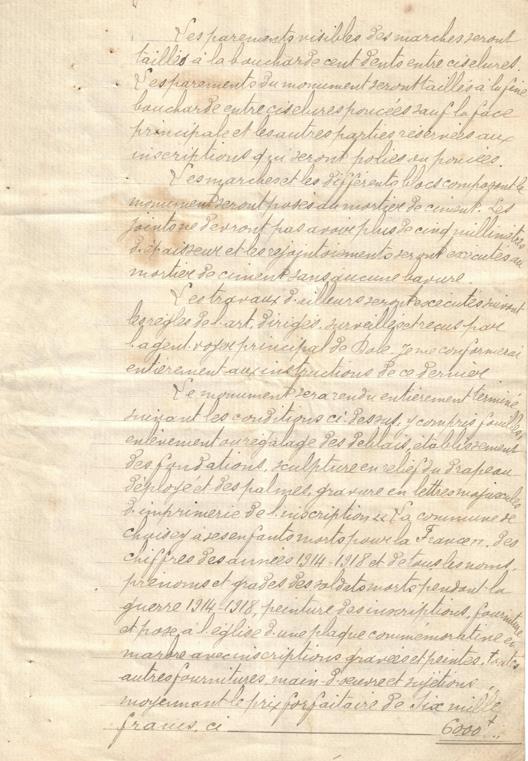 Les parements visibles des marches seront
taillés à la boucharde cent dents entre ciselures.
Les parements du monument seront taillés à la fine
boucharde entre ciselures poncées sauf la face
principale et les autres parties réservées aux
inscriptions qui seront polies ou poncées.
Les marches et les différents blocs composant le
monument seront posés au mortier de ciment. Les
joints ne devront pas avoir plus de cinq millimètres
d'épaisseur et les rejointoiements seront exécutés au
mortier de ciment sans aucune bavure.
Les travaux d'ailleurs seront exécutés suivant
les règles de l'art, dirigés, surveillés et reçus par
l'agent voyer principal de Dole. Je me conformerai
entièrement aux instructions de ce dernier
Le monument sera rendu entièrement terminé
suivant les conditions ci-dessus, y compris fouilles
enlèvement ou régalage des déblais, établissement
des fondations, sculpture en relief du drapeau
déployé et des palmes, gravure en lettres majuscules
d'imprimerie de l'inscription « La commune de
Choisey à ses enfants morts pour la France », des
chiffres des années 1914-1918 et de tous les noms,
prénoms et grades des soldats morts pendant la
guerre 1914-1918, peinture des inscriptions, fourniture
et pose à l'église d'une plaque commémorative en
marbre avec inscriptions gravées et peintes, toutes
autres fournitures, main d'œuvre et sujétions,
moyennant le prix forfaitaire de Six mille
francs, ci 6000 f